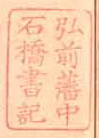 弘前藩中
石橋書記